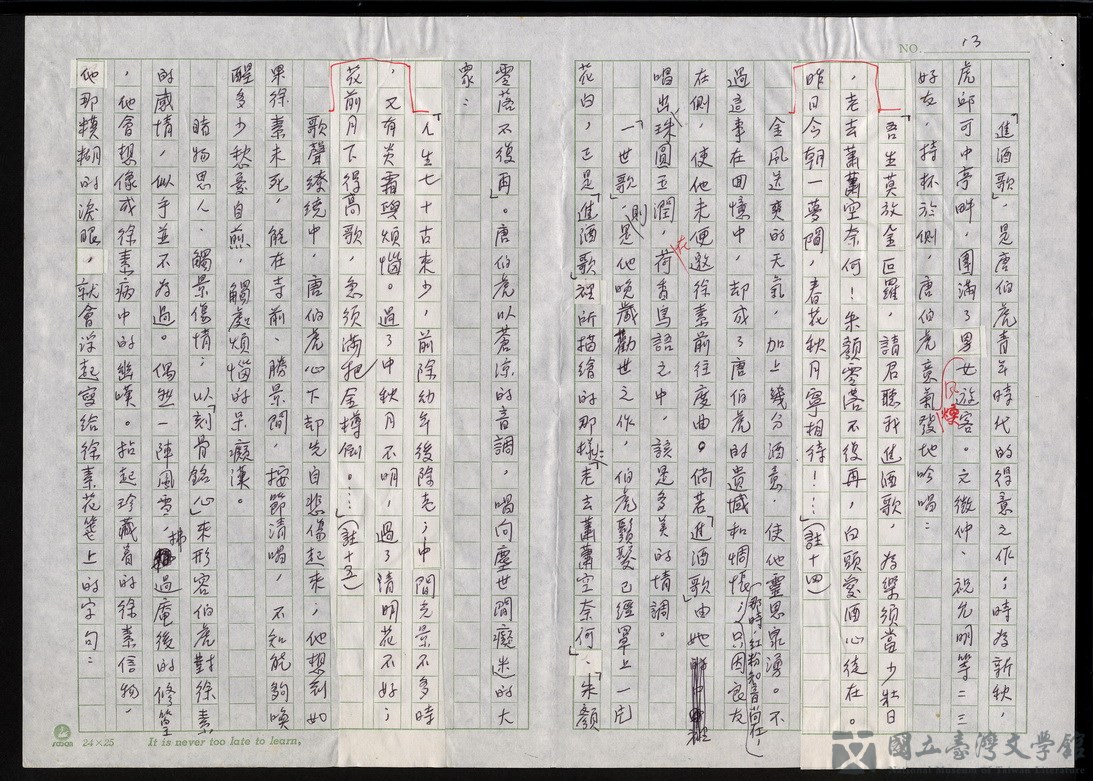 NO. 13
「進酒歌」,是唐伯虎青年時代的得意之作;時為新秋,
虎邱可中亭畔,團滿了男女遊客。文徵仲、祝允明等二三
好友,持杯於側,唐伯虎意氣風發地吟唱:
「吾生莫放金叵羅,請君聽我進酒歌,為樂須當少壯日
,老去蕭蕭空奈何!朱顏零落不復再,白頭愛酒心徒在。
昨日今朝一夢間,春花秋月寧相待!…」(註十四)
金風送爽的天氣,加上幾分酒意,使他靈思泉湧。不
過這事在回憶中,却成了唐伯虎的遺憾和惆悵;只因良友
在側,使他未便邀徐素前往度曲。倘若「進酒歌」由她
(那時,紅粉知音尚在,
唱出,珠圓玉潤,在荷香鳥語之中,該是多美的情調。
「一世歌」,則是他晚歲勸世之作,伯虎鬢髮已經罩上一層
花白,正是「進酒歌」裡所描繪的那樣:「老去蕭蕭空奈何」、「朱顏
零落不復再」。唐伯虎以蒼涼的音調,唱向塵世間癡迷的大
眾:
「人生七十古來少,前除幼年後除老;中間光景不多時
,又有炎霜與煩惱。過了中秋月不明,過了清明花不好;
花前月下得高歌,急須滿把金樽倒。…」(註十五)
歌聲繚繞中,唐伯虎心下却先自悲傷起來;他想到如
果徐素未死,能在寺前、勝景間,按節清唱,不知能夠喚
醒多少愁憂自煎,觸處煩惱的呆癡漢。
睹物思人、觸景傷情;以「刻骨銘心」來形容伯虎對徐素
的感情,似乎並不為過。偶然一陣風雪,拂過庵後的修篁
,他會想像成徐素病中的幽嘆。拈起珍藏着的徐素信物,
他那模糊的淚眼,就會浮起寫給徐素花箋上的字句:
24×25 It is never too late to learn,
國立臺灣文學館
National Museum of Taiwan Literature